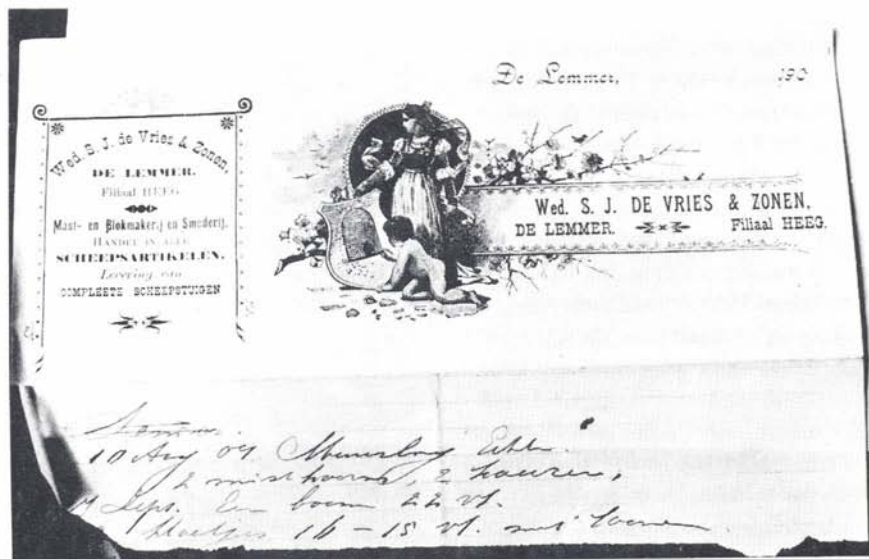 De Lemmer, 190
Wed. S. J. de Vries & Zonen,
DE LEMMER.
Filiaal HEEG
Mast- en Blokmakerij en Smederij.
HANDEL IN ALLE
SCHEEPSARTIKELEN.
Levering van
COMPLEETE SCHEEPSTUIGEN
Wed. S. J. DE VRIES & ZONEN,
DE LEMMER. Filiaal HEEG.
10 Aug 09.
2 misthoorns, 2
Sept. Een boom 22 vt.
16 15 vt.